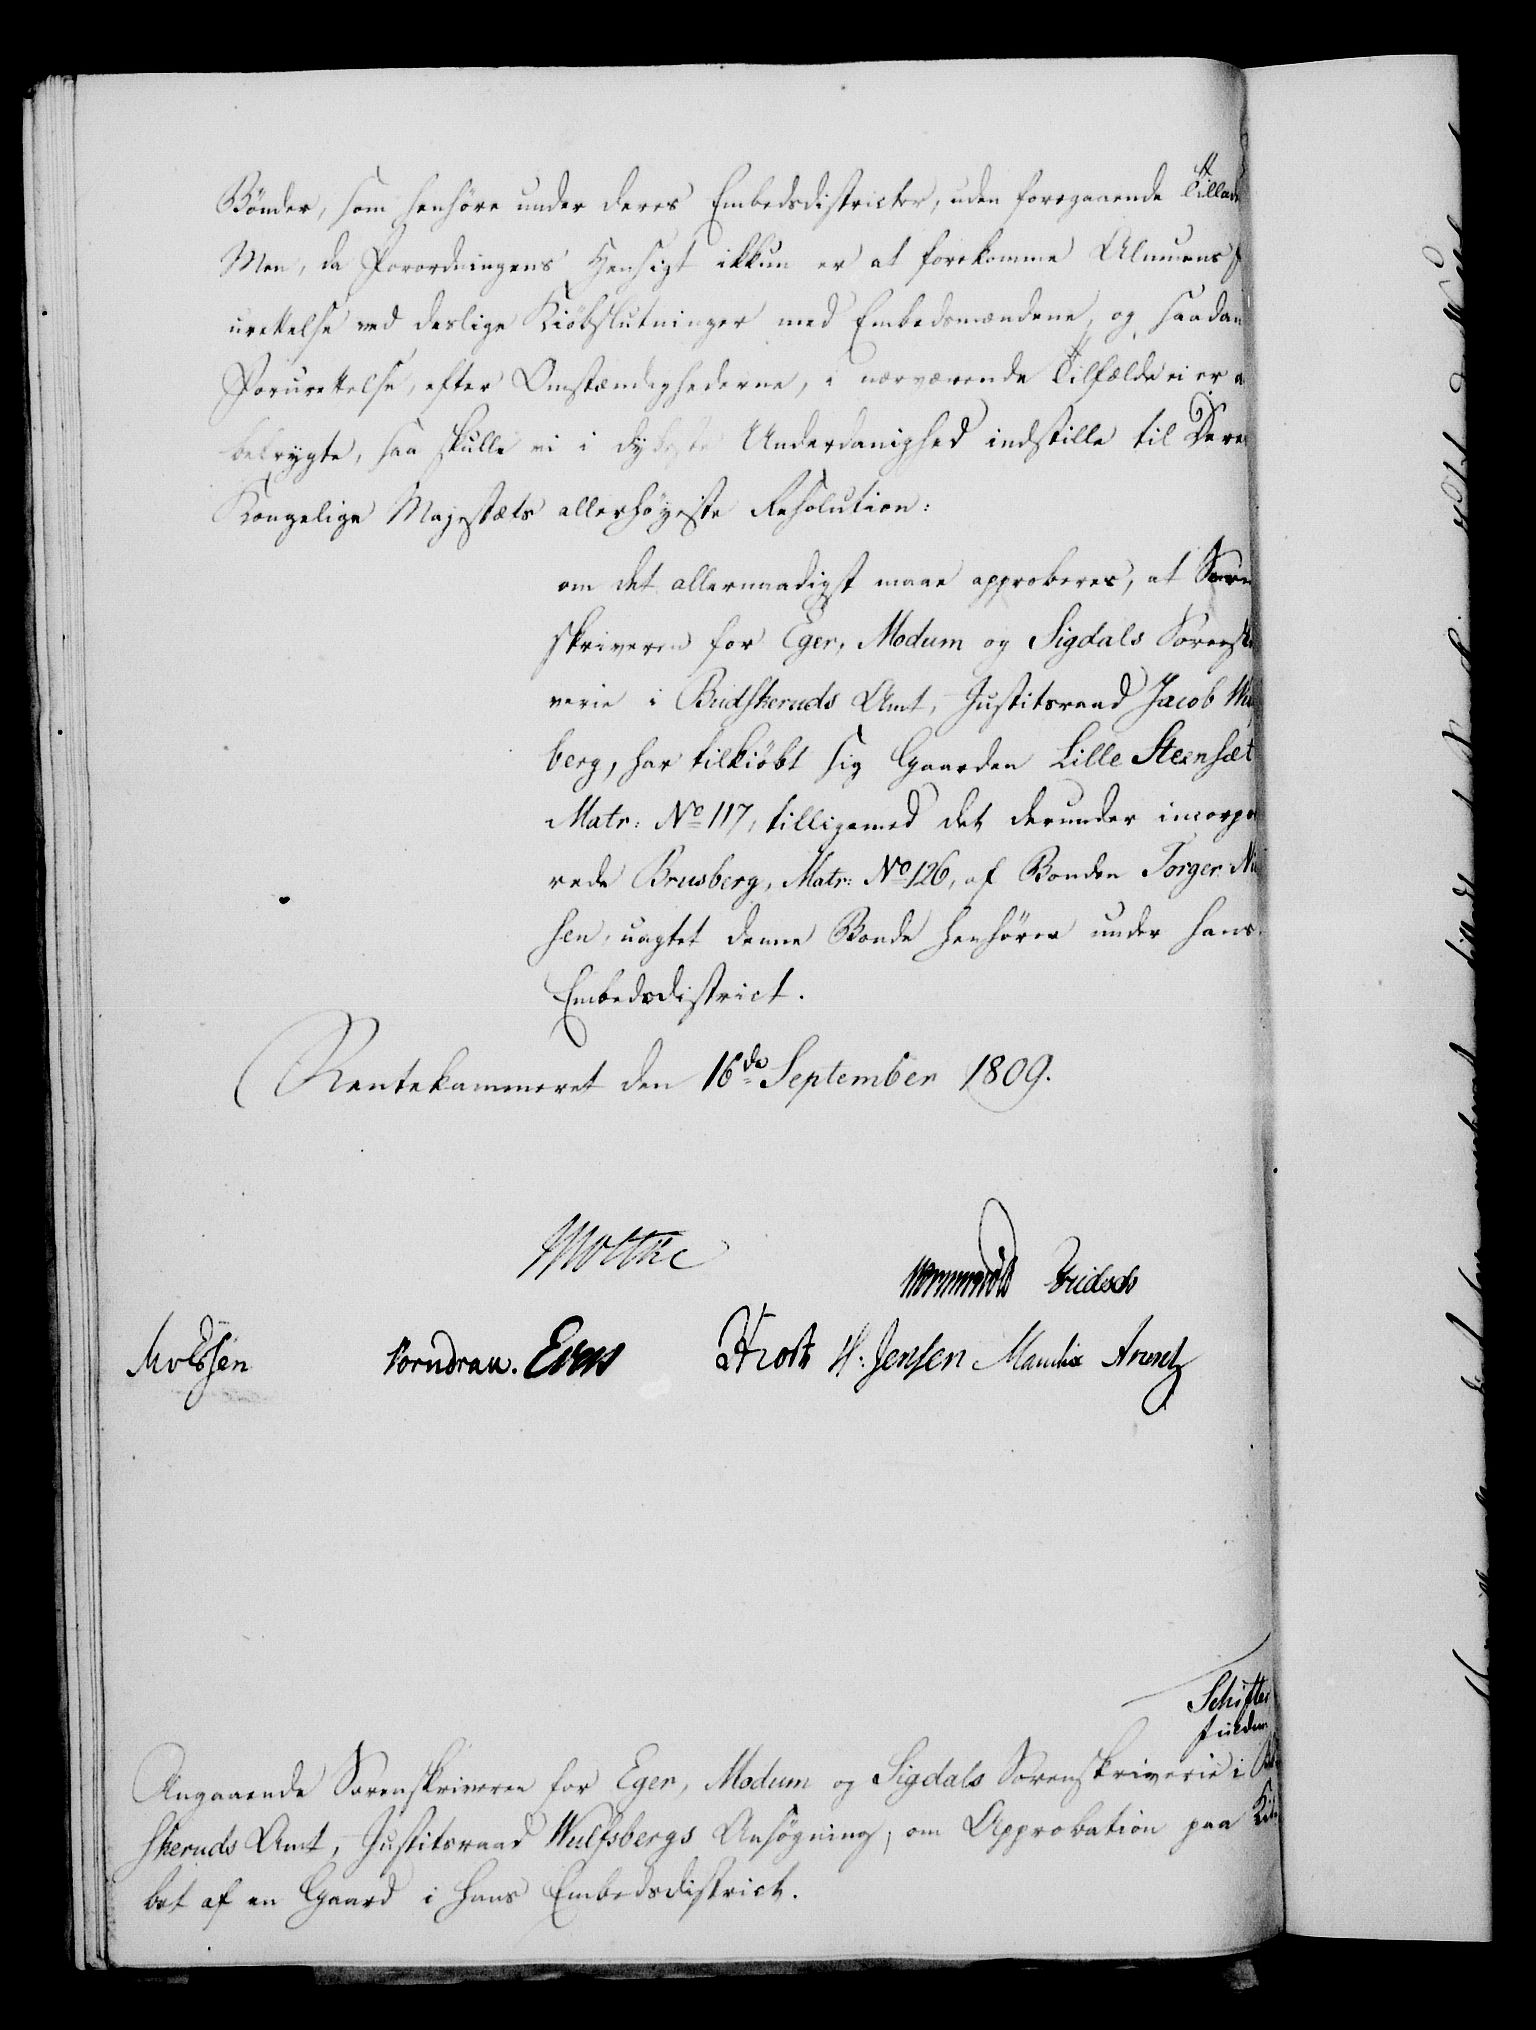 Bönder, som henhöre under deres Embedsdistricter, uden foregaaende
Men, da Forordningens Hensigt ikkun er at forekomme Almuens
urettelse ved deslige Kiöbslutninger med Embedsmændene, og saadan
Forurettelse, efter Omstændighederne, i nærværende Tilfælde ei er
befrygte, saa skulle vi i dybeste Underdanighed indstille til Deres
Kongelige Majestæts allerhöyeste Resolution:
om det allernaadigst maae approberes, at Soren
skriveren for Eger, Modum og Sigdals Sorenskri
verie i Budskeruds Amt, Justitsraad Jacob Wulfs
berg, har tilkiöbt sig Gaarden Lille Steensæt
Matr: No 117, tilligemed det derunder incorpo
rede Brusberg, Matr: No 126, af Bonden Torger
sen, uagtet denne Bonde henhörer under hans
Embedsdistrict.
Rentekammeret den 16de September 1809.
Moltke
Wormskiold
Molssen Vorndran. Evers Krog H: Jensen Manthei Arentz
Angaaende Sorenskriveren for Eger, Modum og Sigdals Sorenskriverie i
skeruds Amt, Justitsraad Wulfsbergs Ansögning, om Approbation paa Kiö
bet af en Gaard i hans Embedsdistrict.